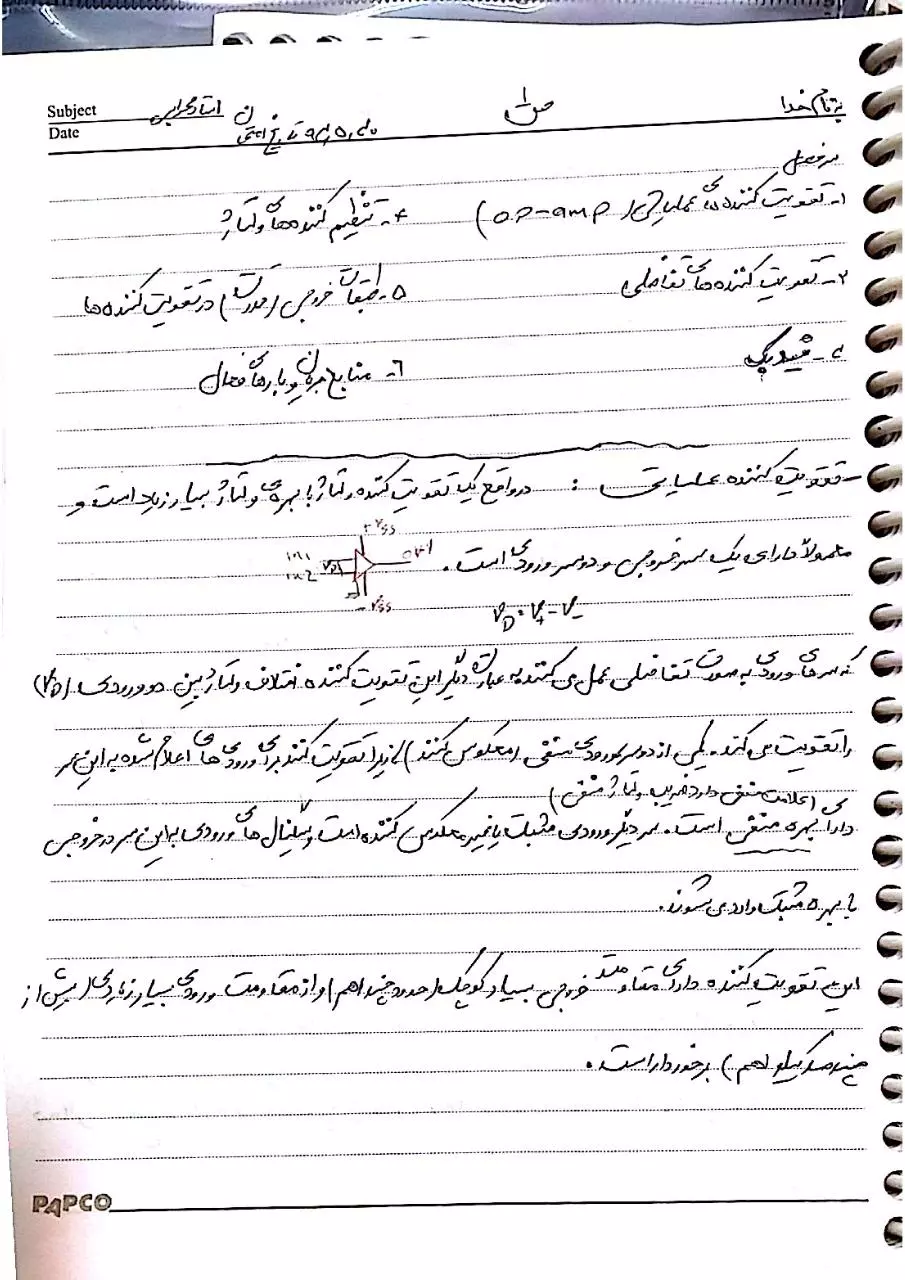 به نام خدا
ص ۱
Subject
Date
استاد
سرفصل
۱- تقویت کننده های عملیاتی (op-amp)
۴- تنظیم کننده های ولتاژ
۲- تقویت کننده های تفاضلی
۵- طبقات خروجی (قدرت) در تقویت کننده ها
۳- فیدبک
۶- منابع جریان و بارهای فعال
- تقویت کننده عملیاتی : در واقع یک تقویت کننده ولتاژ با بهره ی ولتاژ بسیار زیاد است و
معمولاً دارای یک سر خروجی و دو سر ورودی است.
+Vss
in1
in2
VD
out
-Vss
VD = V+ - V-
که سرهای ورودی به صورت تفاضلی عمل می کنند به عبارت دیگر این تقویت کننده اختلاف ولتاژ بین دو ورودی (VD)
را تقویت می کند. یکی از دو سر ورودی منفی (معکوس کننده) زیرا تقویت کننده برای ورودی های اعلام شده به این سر
(علامت منفی دارد ضریب ولتاژ منفی)
دارای بهره منفی است. سر دیگر ورودی مثبت یا غیر معکوس کننده است و سیگنال های ورودی به این سر در خروجی
با بهره مثبت وارد می شوند.
این تقویت کننده دارای مقاومت خروجی بسیار کوچک (حدود چند اهم) و از مقاومت ورودی بسیار زیادی (بیش از
چند صد کیلو اهم) برخوردار است.
PAPCO